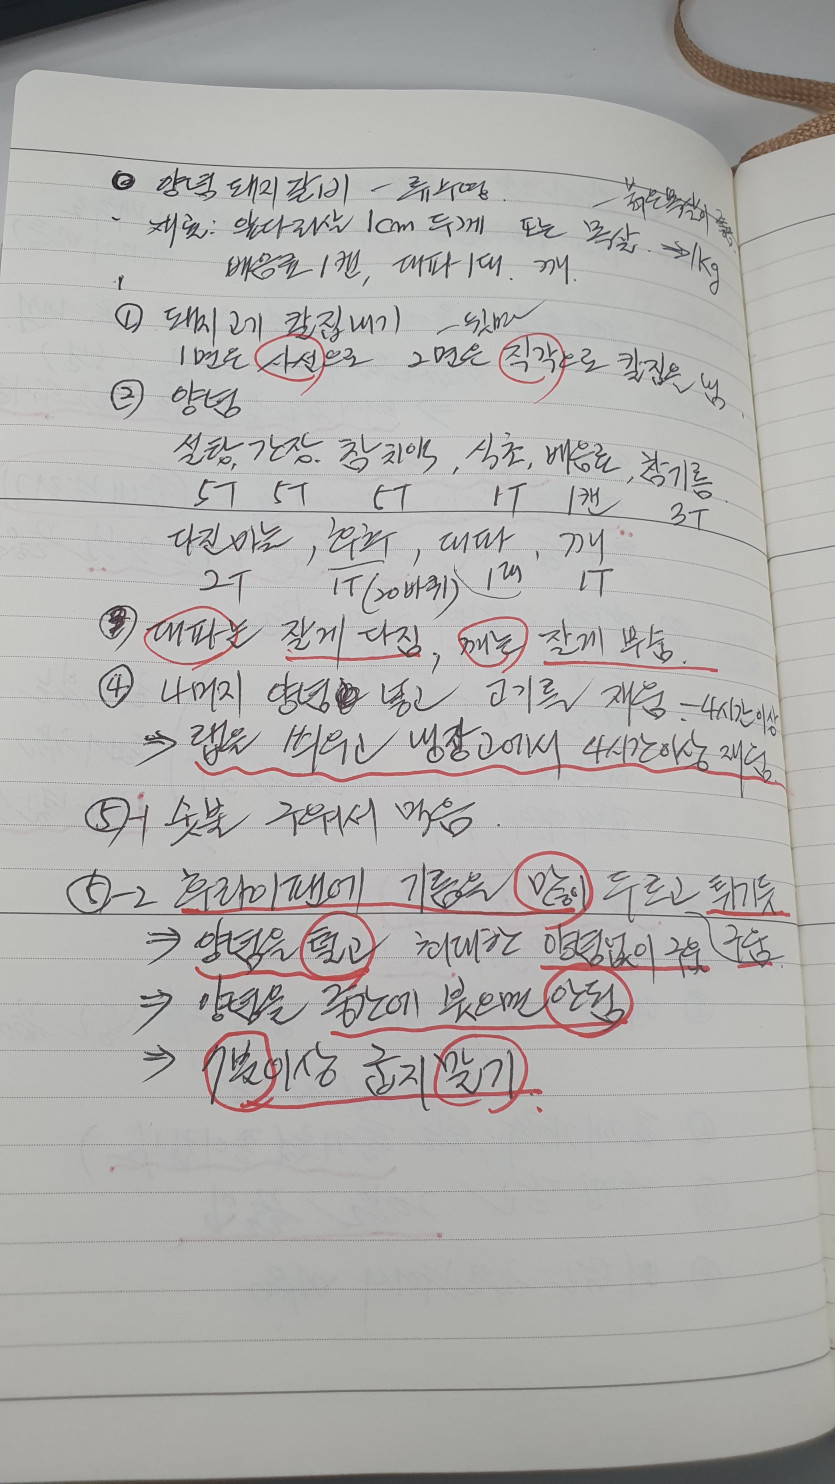 양념 돼지갈비 - 류수영.
- 재료: 앞다리살 1cm 두께 또는 목살. → 1kg
배음료 1캔, 대파 1대. 깨.
① 돼지고기 칼집내기
1면은 사선으로 2면은 직각으로 칼집을 냄.
② 양념
설탕, 간장. 참치액, 식초, 배음료, 참기름.
5T 5T 1T 1캔 3T
다진마늘, 후추, 대파, 깨
2T 1T(20바퀴) 1대 1T
③ 대파는 잘게 다짐, 깨는 잘게 부숨.
④ 나머지 양념 넣고 고기를 재움 - 4시간이상
⇒ 랩을 씌우고 냉장고에서 4시간이상 재움.
⑤-1 숯불 구워서 먹음.
⑤-2 후라이팬에 기름을 많이 두르고 튀기듯 구움.
⇒ 양념을 털고 최대한 양념없이 구움
⇒ 양념을 중간에 부으면 안됨
⇒ 7분이상 굽지 말기.